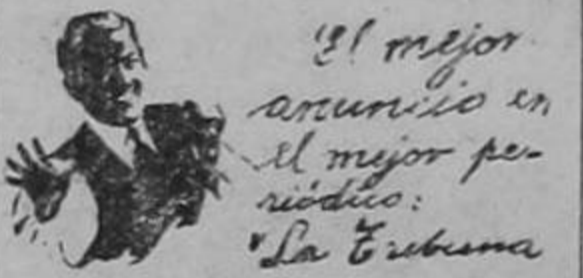 "El mejor
anuncio en
el mejor pe-
riódico:
"La Tribuna